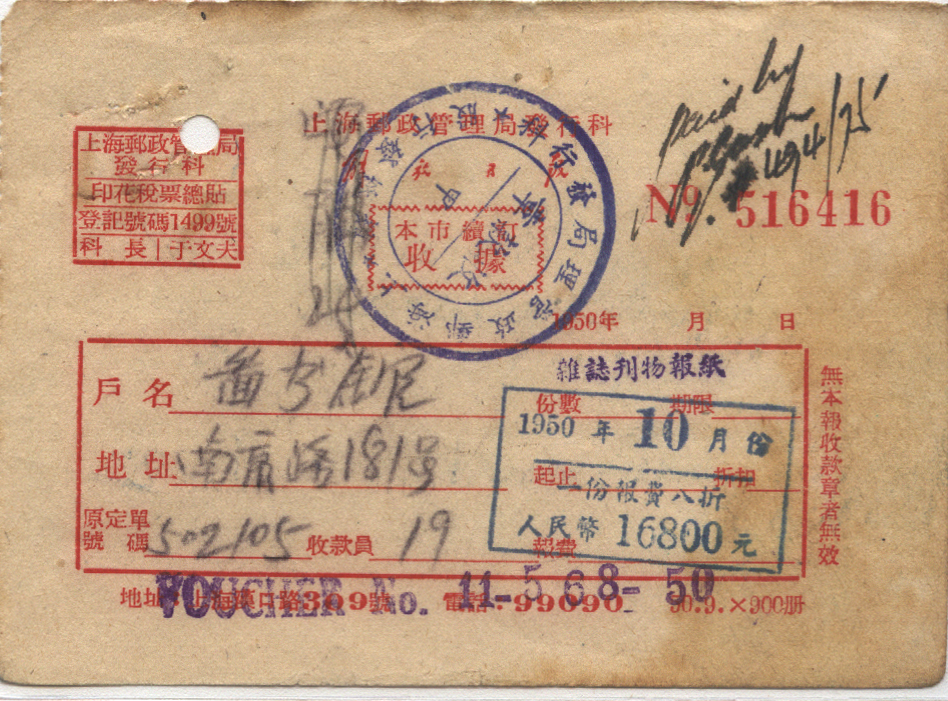 上海郵政管理局發行科
上海郵政管理局
發行科
印花稅票總貼
登記號碼1499號
科長 于文夫
paid by
Cash
#494/75
No. 516416
本市續訂
收據
上海郵政管理局發行科
1950年 月 日
雜誌刊物報紙
戶名
份數 期限
1950年10月份
地址 南京路181号
起止 折扣
一份報費八折
人民幣16800元
原定單號碼 502105 收款員 19
報費
無本報收款章者無效
VOUCHER No. 11-568-50
地址：上海 路309號 電話：99090 50.9.×900册